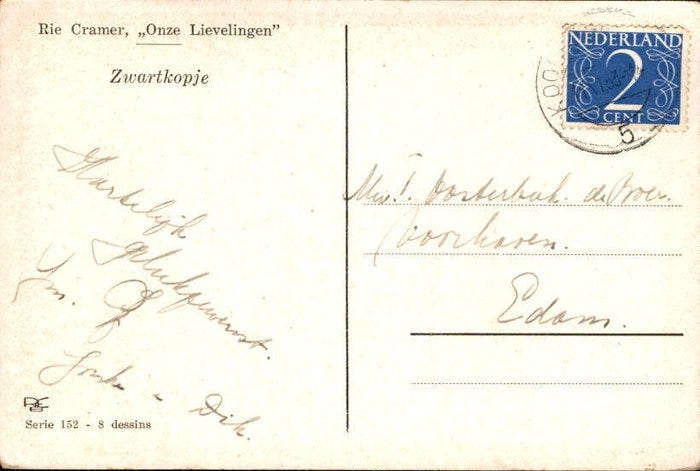 Rie Cramer, „Onze Lievelingen”
Zwartkopje
Hartelijk
gelukgewenst.
Jm.
en Dik.
Serie 152 - 8 dessins
NEDERLAND
2
CENT
5
Mw. T. Oosterbok. de Boer.
Voorhaven.
Edam.